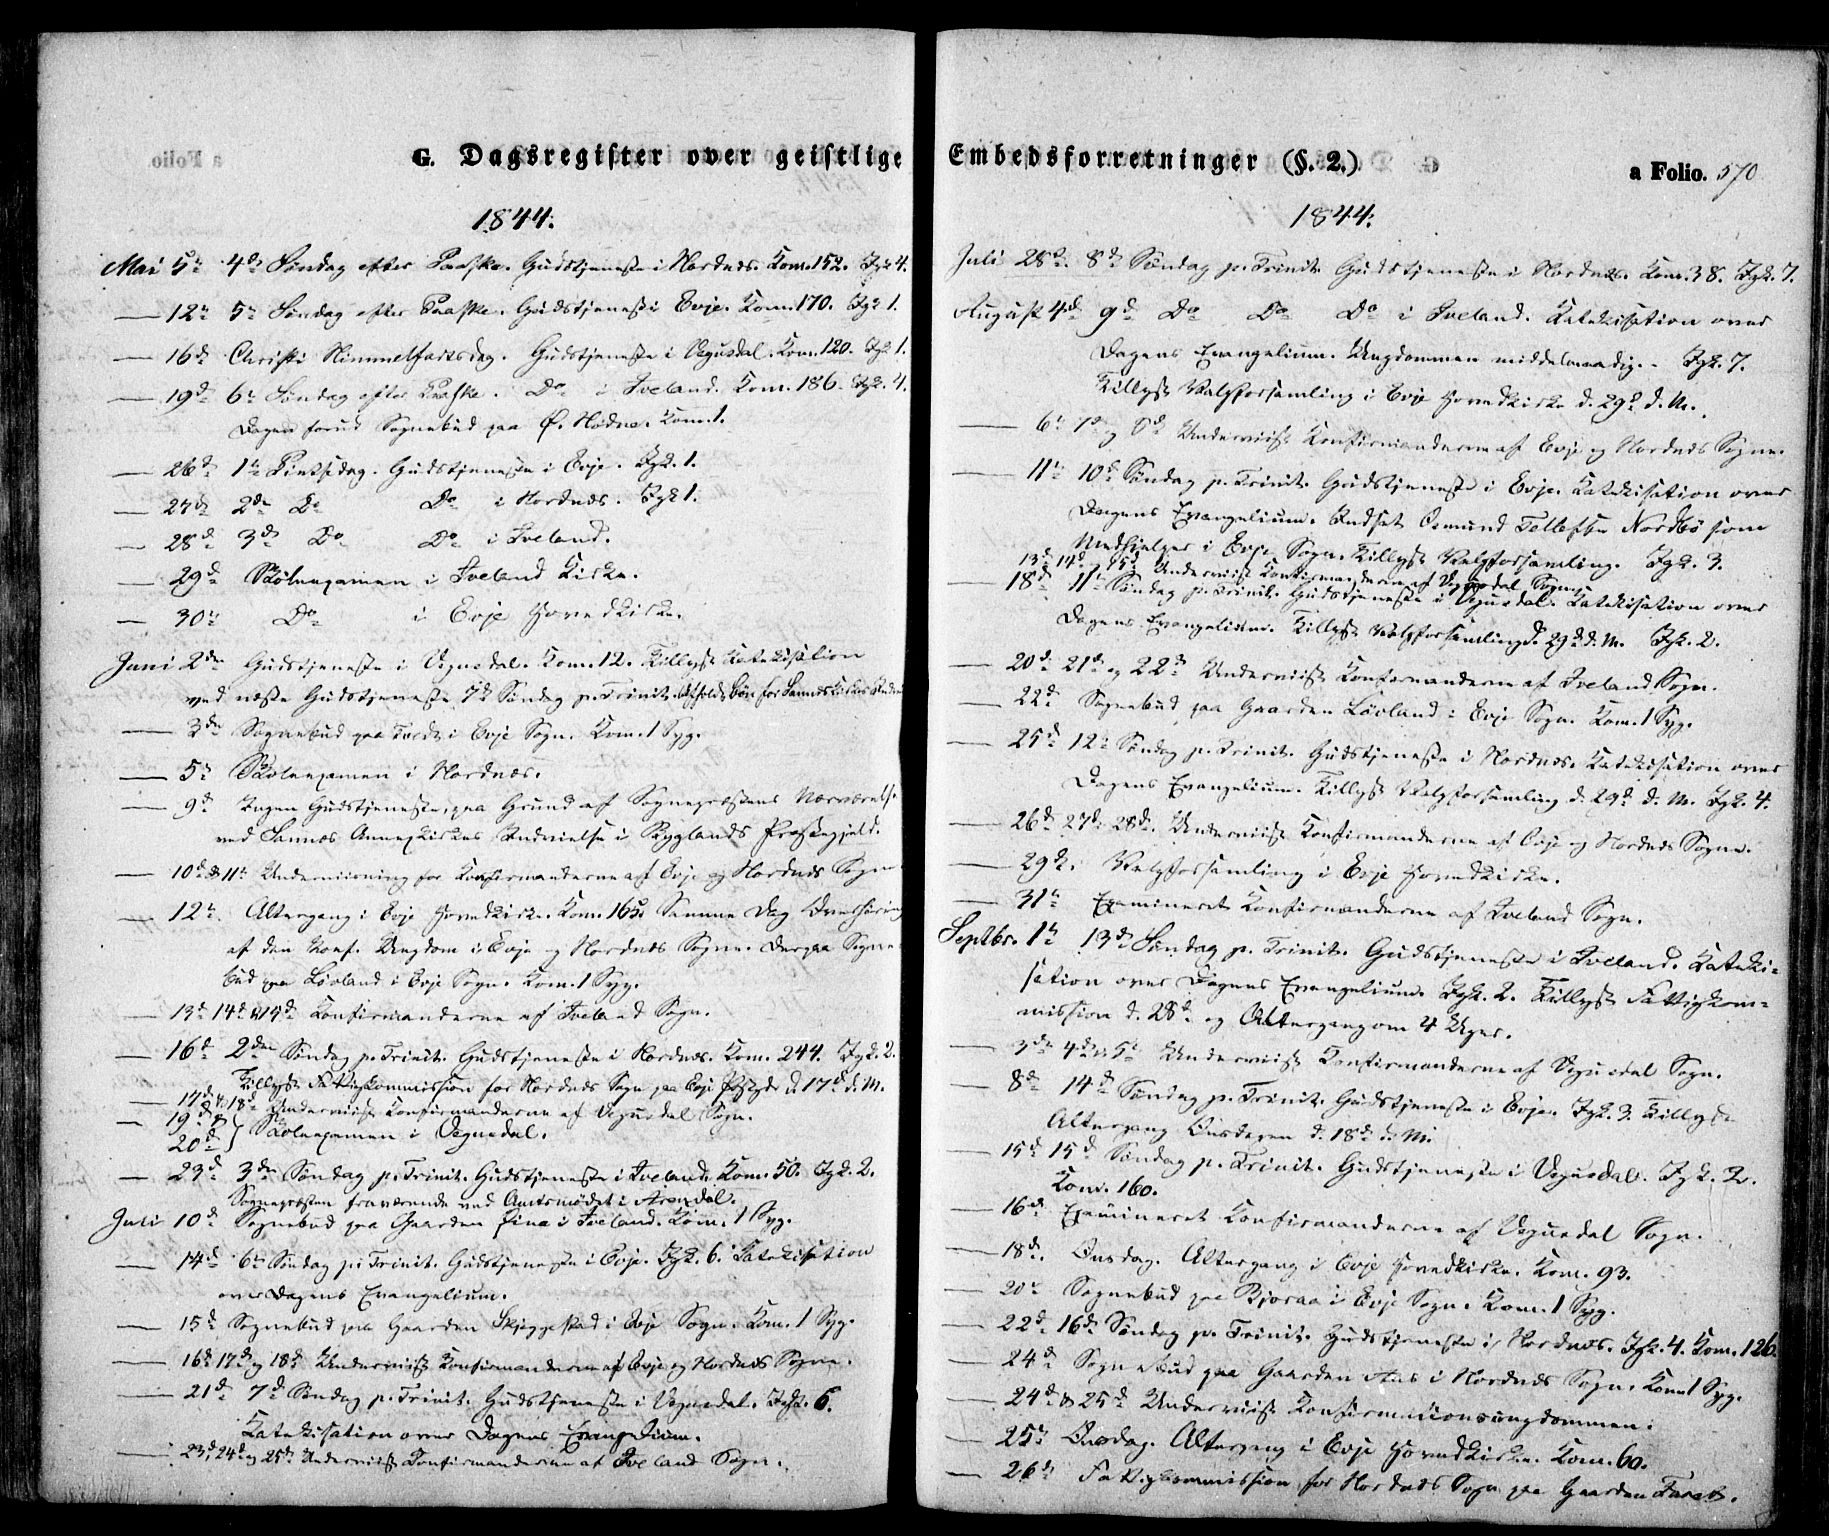 G. Dagsregister over geistlige
1844.
Mai 5te 4de Søndag efter Paaske. Gudstjeneste i Hordnæs. Kom. 152. Igk. 4.
— 12te 5te Søndag efter Paaske. Gudstjeneste i Evje. Kom. 170. Igk. 1.
— 16de Christi Himmelfartsdag. Gudstjeneste i Vegusdal. Kom. 120. Igk. 1.
— 19de 6te Søndag efter Paaske. Do i Iveland. Kom. 186. Igk. 4.
Dagen forud Sognebud paa Ø. Hodne. Kom. 1.
— 26de 1te Pintsedag. Gudstjeneste i Evje. Igk. 1.
— 27de 2den Do Do i Hordnæs. Igk 1.
— 28de 3de Do Do i Iveland.
— 29de Skoleexamen i Iveland Kirke.
— 30te Do i Evje Hovedkirke.
Juni 2den Gudstjeneste i Vegusdal. Kom. 12. Tillyst Katekisation
ved næste Gudstjeneste 7de Søndag p. Trinit. Afholdt Bøn for Sannes Kirkes
— 3die Sognebud paa Tveit i Evje Sogn. Kom. 1 Syg.
— 5te Skoleexamen i Hordnæs.
— 9de Ingen Gudstjeneste, paa Grund af Sognepræstens Nærværelse
ved Sannes Annexkirkes Indvielse i Byglands Præstegjeld.
— 10de & 11te Underviisning for Konfirmanderne af Evje og Hordnæs Sogne
— 12te Altergang i Evje Hovedkirke. Kom. 165. Samme Dag Overhøring
af den konf. Ungdom i Evje og Hordnæs Sogne. Derpaa Sogne-
bud paa Løvland i Evje Sogn. Kom. 1 Syg.
— 13de 14de & 15de Konfirmanderne af Iveland Sogn.
— 16de 2den Søndag p. Trinit. Gudstjeneste i Hordnæs. Kom. 244. Igk. 2.
Tillyst Fattigkommission for Hordnæs Sogn paa Evje Pstgd. d. 17de d. M.
— 17de & 18de Underviist Konfirmanderne af Vegusdal Sogn.
— 19de & 20de } Skoleexamen i Vegusdal.
— 23de 3die Søndag p. Trinit. Gudstjeneste i Iveland. Kom. 50. Igk. 2.
Sognepræsten fraværende ved Amtsmødet i Arendal.
Juli 10de Sognebud paa Gaarden Fina i Iveland. Kom. 1 Syg.
— 14de 6te Søndag p. Trinit. Gudstjeneste i Evje. Igk. 6. Katekisation
over Dagens Evangelium.
— 15de Sognebud paa Gaarden Skjeggestad i Evje Sogn. Kom. 1 Syg.
— 16de 17de og 18de Underviist Konfirmanderne af Evje og Hordnæs Sogne.
— 21de 7de Søndag p. Trinit. Gudstjeneste i Vegusdal. Igk. 6.
Katekisation over Dagens Evangelium.
— 23de, 24de og 25de Underviist Konfirmanderne af Iveland Sogn.
Embedsforretninger (§. 2.)
a Folio. 570
1844.
Juli 28de. 8de Søndag p. Trinit. Gudstjeneste i Hordnæs. Kom. 38. Igk. 7.
August 4de 9de Do Do Do i Iveland. Katekisation over
Dagens Evangelium. Ungdommen middelmaadig. Igk. 7.
Tillyst Valgforsamling i Evje Hovedkirke d. 29de d. M.
— 6te 7de og 8de Underviist Konfirmanderne af Evje og Hordnæs Sogne.
— 11te 10de Søndag p. Trinit. Gudstjeneste i Evje. Katekisation over
Dagens Evangelium. Indsat Osmund Tellefsen Nordbø som
Medhjelper i Evje Sogn. Tillyst Valgforsamling. Igk. 3.
13de 14de 15de Underviist Konfirmanderne af Vegusdal Sogn.
— 18de 11te Søndag p. Trinit. Gudstjeneste i Vegusdal. Katekisation over
Dagens Evangelium. Tillyst Valgforsamling d. 29de d. M. Igk. 2.
— 20de 21de og 22de Underviist Konfirmanderne af Iveland Sogn.
— 22de Sognebud paa Gaarden Løvland i Evje Sogn. Kom. 1 Syg.
— 25de 12te Søndag p. Trinit. Gudstjeneste i Hordnæs. Katekisation over
Dagens Evangelium. Tillyst Valgforsamling d. 29de d. M. Igk. 4.
— 26de 27de 28de. Underviist Konfirmanderne af Evje og Hordnæs Sogne.
— 29de. Valgforsamling i Evje Hovedkirke.
— 31te Examineret Konfirmanderne af Iveland Sogn.
Septbr. 1te 13de Søndag p. Trinit. Gudstjeneste i Iveland. Kateki-
sation over Dagens Evangelium. Igk. 2. Tillyst Fattigkom-
mission d. 28de og Altergang om 4 Uger.
— 3die 4de & 5te Underviist Konfirmanderne af Vegusdal Sogn.
— 8de 14de Søndag p. Trinit. Gudstjeneste i Evje. Igk. 3. Tillyst
Altergang Onsdagen d. 18de d. M.
— 15de 15de Søndag p. Trinit. Gudstjeneste i Vegusdal. Igk. 2.
Kom. 160.
— 16de Examineret Konfirmanderne af Vegusdal Sogn.
— 18de. Onsdag. Altergang i Evje Hovedkirke. Kom. 93.
— 20de Sognebud paa Bjoraa i Evje Sogn. Kom. 1 Syg.
— 22de 16de Søndag p. Trinit. Gudstjeneste i Hordnæs. Igk. 4. Kom. 126.
— 24de Sognebud paa Gaarden Aas i Hordnæs Sogn. Kom 1 Syg.
— 24de & 25de Underviist Konfirmationsungdommen.
— 25te Onsdag. Altergang i Evje Hovedkirke. Kom. 60.
— 26de Fattigkommission for Hordnæs Sogn paa Gaarden